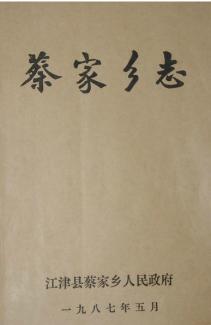 蔡家乡志
江津县蔡家乡人民政府
一九八七年五月